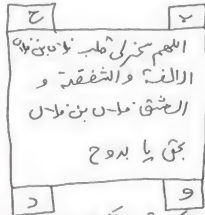 ب ح
اللهم سخر لی قلب فلاں بن فلاں
الالفة والشفقة و
العشق فلاں بن فلاں
بحق یا بدوح
د و